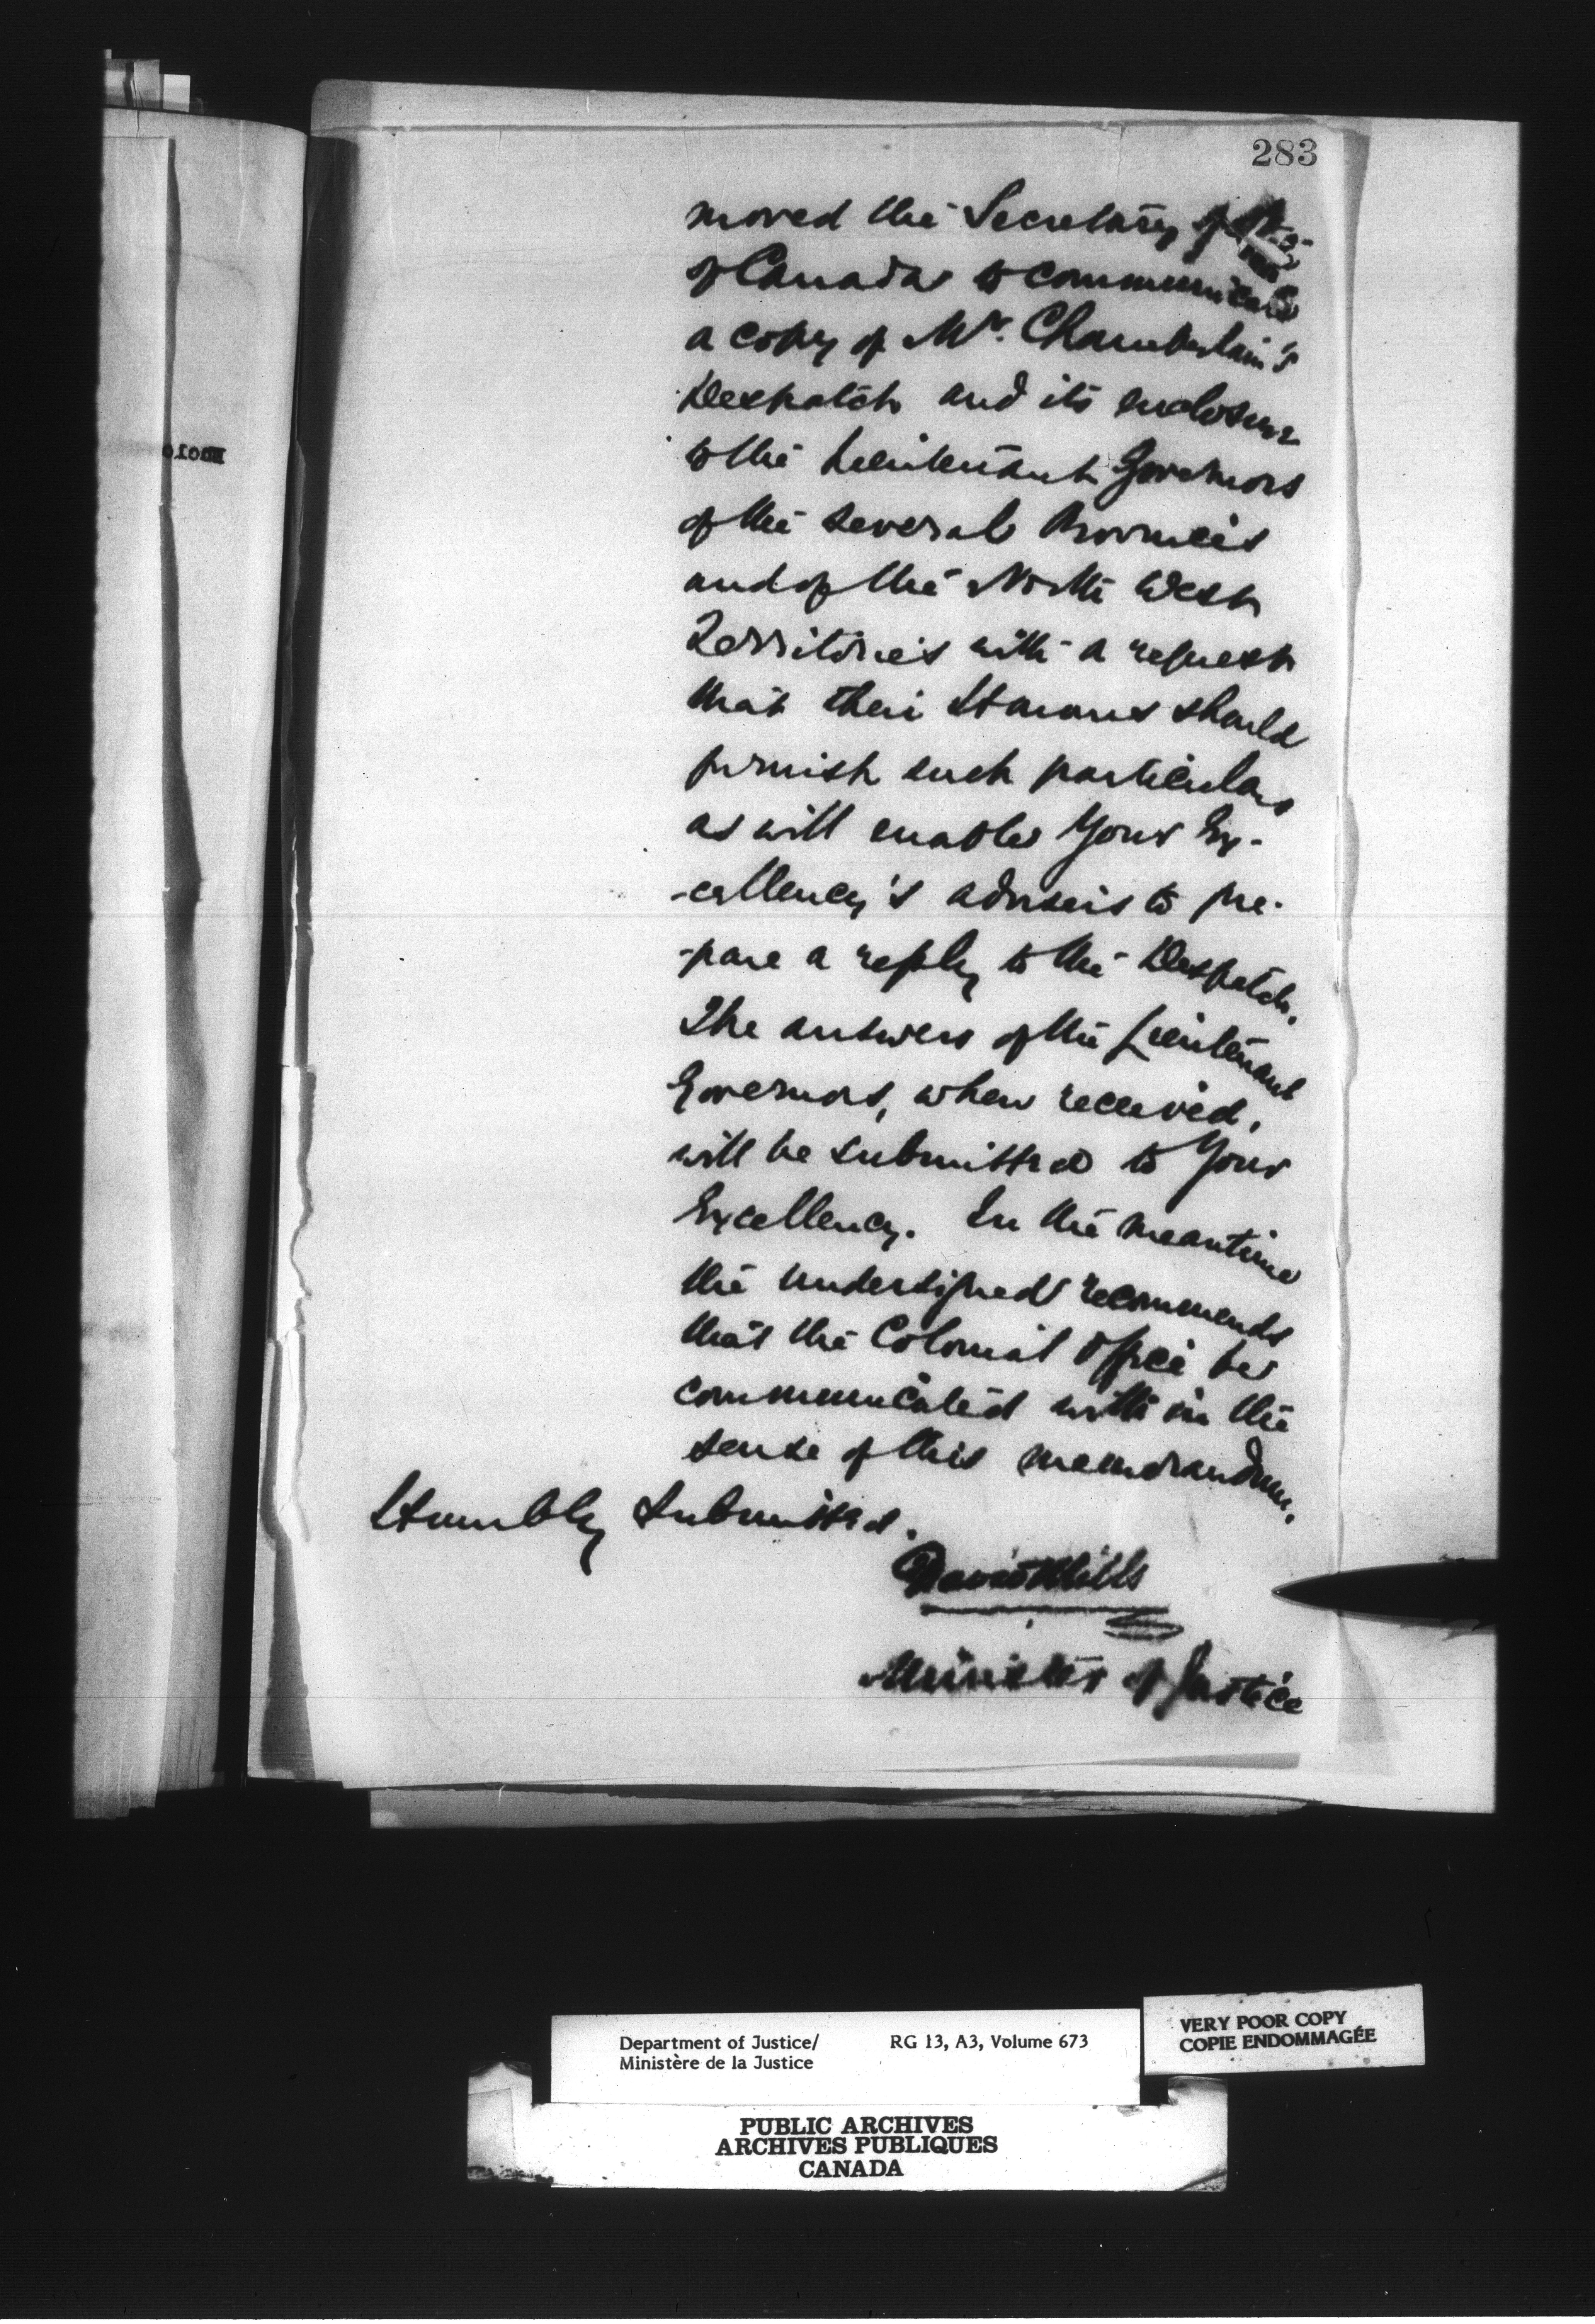 283
moved the Secretary of State
of Canada to communicate
a copy of Mr. Chamberlain's
Despatch and its enclosure
to the Lieutenant Governors
of the several Provinces
and of the North West
Territories with a request
that their Honours should
furnish such particulars
as will enable Your Ex-
-cellency's advisers to pre-
-pare a reply to the Despatch.
The answers of the Lieutenant
Governors, when received,
will be submitted to Your
Excellency. In the meantime
the undersigned recommends
that the Colonial Office be
communicated with in the
sense of this memorandum.
Humbly submitted.
David Mills
Minister of Justice
Department of Justice/ RG 13, A3, Volume 673
Ministère de la Justice
VERY POOR COPY
COPIE ENDOMMAGÉE
PUBLIC ARCHIVES
ARCHIVES PUBLIQUES
CANADA